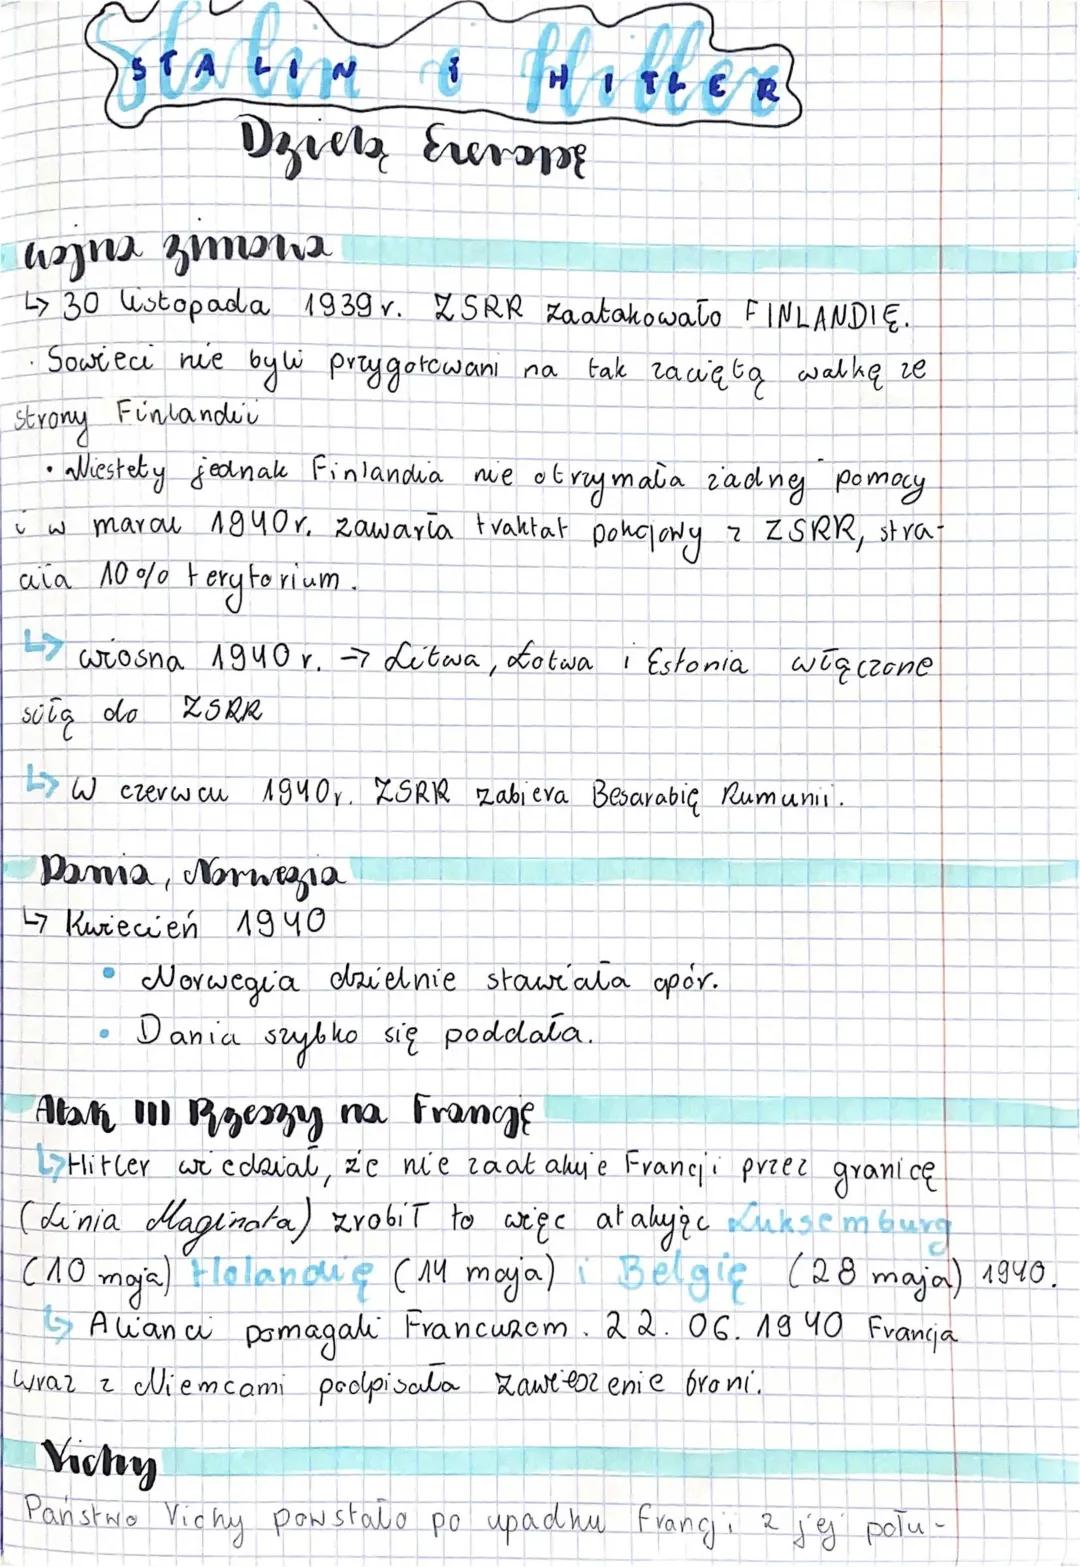 STALIN i HITLER
Dzielą Europę
Wojna zimowa
↳ 30 listopada 1939 r. ZSRR zaatakowało FINLANDIĘ.
· Sowieci nie byli przygotowani na tak zaciętą walkę ze
strony Finlandii
• Niestety jednak Finlandia nie otrzymała żadnej pomocy
i w marcu 1940r. zawarła traktat pokojowy z ZSRR, stra-
ciła 10% terytorium.
↳ wiosna 1940 r. → Litwa, Łotwa i Estonia włączone
siłą do ZSRR
↳ W czerwcu 1940r. ZSRR zabiera Besarabię Rumunii.
Dania, Norwegia
↳ Kwiecień 1940
• Norwegia dzielnie stawiała opór.
• Dania szybko się poddała.
Atak III Rzeszy na Francję
↳ Hitler wiedział, że nie zaatakuje Francji przez granicę
(Linia Maginota) zrobił to więc atakując Luksemburg
(10 maja) Holandię (14 maja) i Belgię (28 maja) 1940.
↳ Alianci pomagali Francuzom. 22. 06. 1940 Francja
wraz z Niemcami podpisała zawieszenie broni.
Vichy
Państwo Vichy powstało po upadku Francji z jej połu-